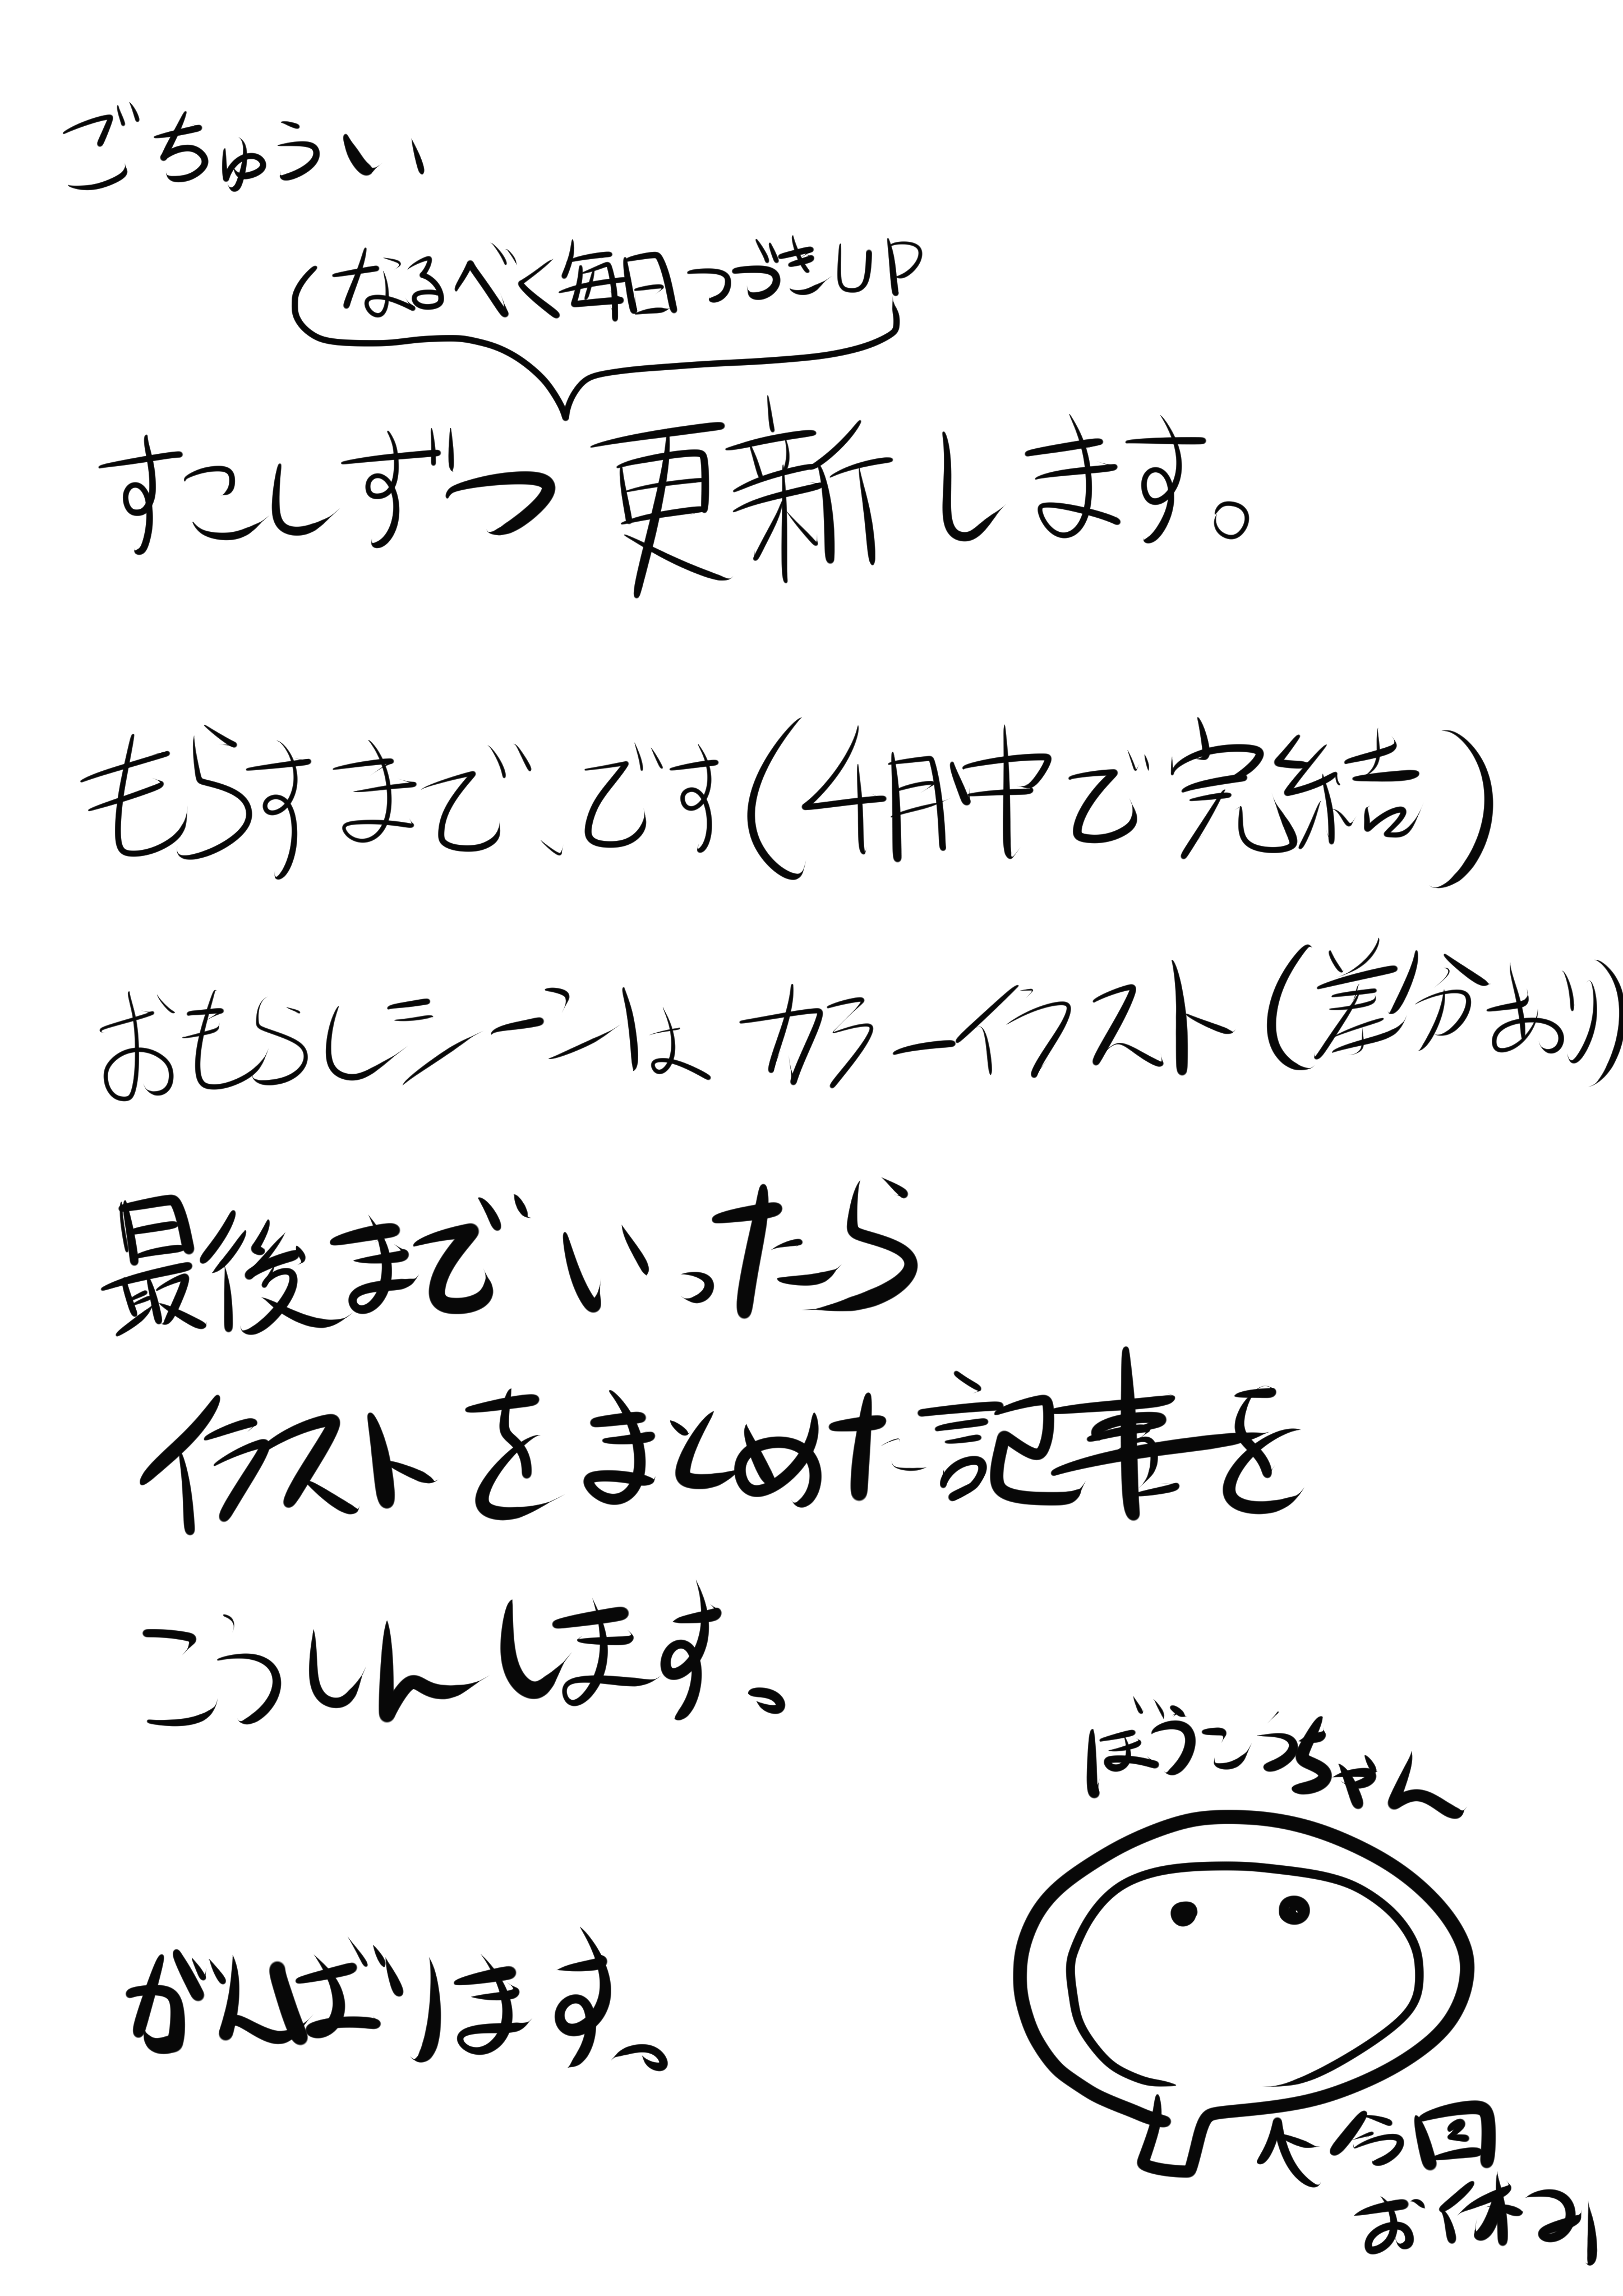 ごちゅうい
なるべく毎日つづきUP
すこしずつ更新します。
もらすまで、です(4冊中で完結)
おもらしシーンはカラーイラスト(差分あり)
最後までいったら
イラストをまとめた記事を
こうしんします、
がんばります。
ぼうこうちゃん
大今回
お休み